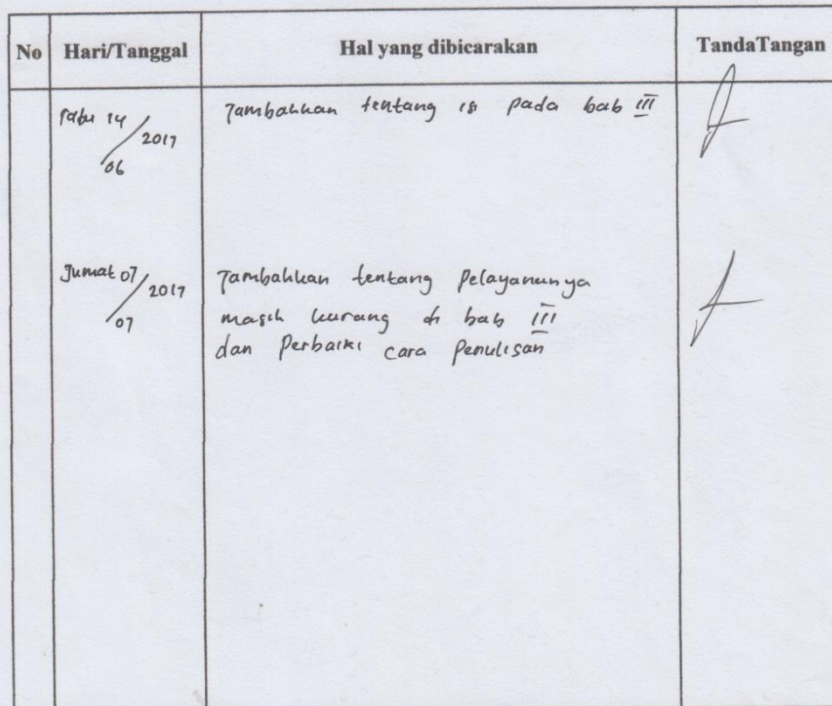 No Hari/Tanggal Hal yang dibicarakan TandaTangan
Rabu 14/06 2017
Tambahkan tentang isi pada bab III
Jumat 07/07 2017
Tambahkan tentang Pelayanannya
masih kurang di bab III
dan Perbaiki cara Penulisan